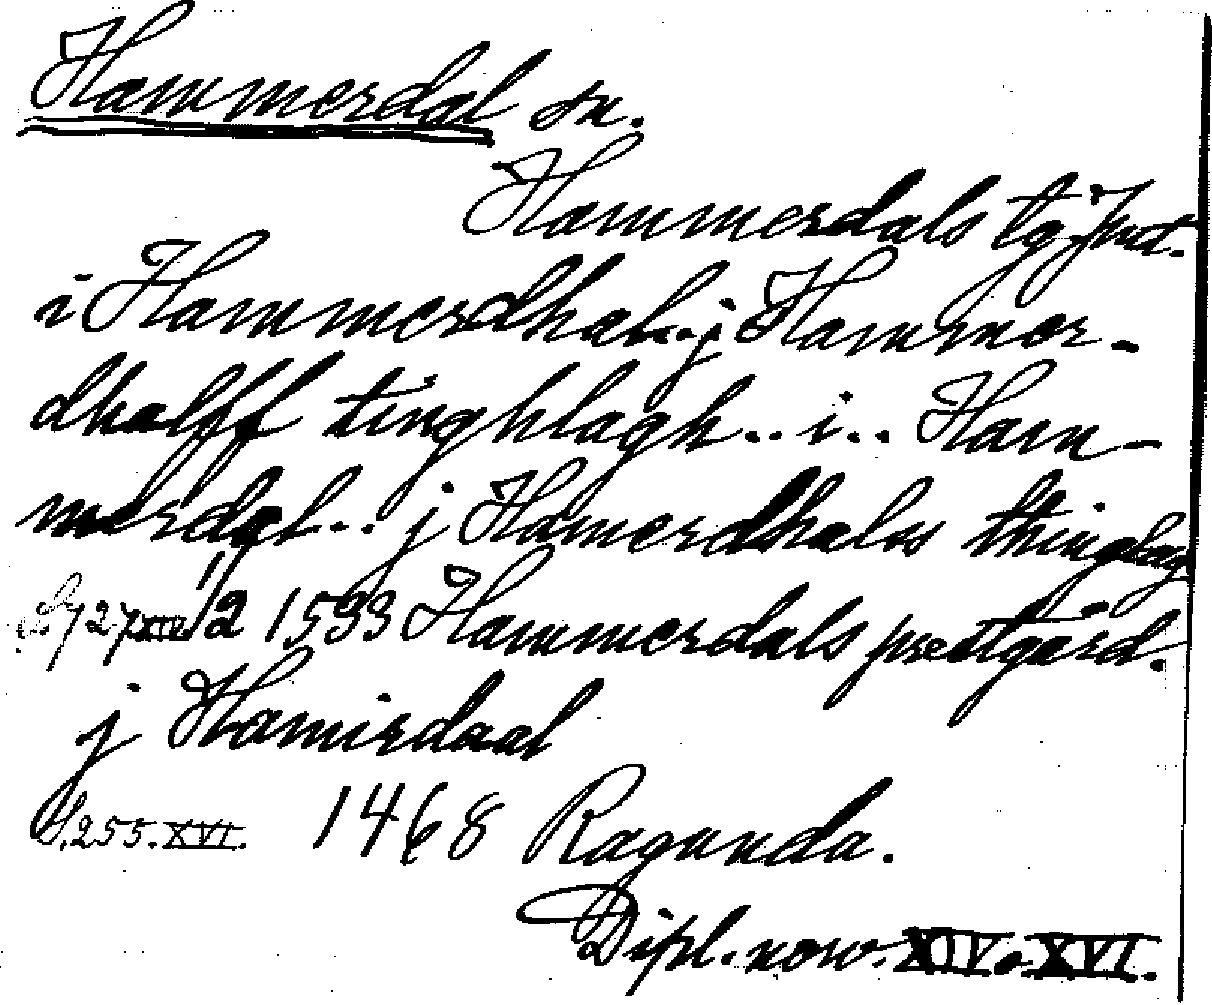 Hammerdal sn.
Hammerdals tg. Jmt.
i Hammerdhal.. j Hammer-
dhalff tinghlagh.. i.. Ham-
merdal.. j Hamerdhals thinglag
S 727 XIV 1/2 1533 Hammerdals prestgård.
j Hamirdaal
S. 255. XVI. 1468 Ragunda.
Dipl. norv. XIV o XVI.